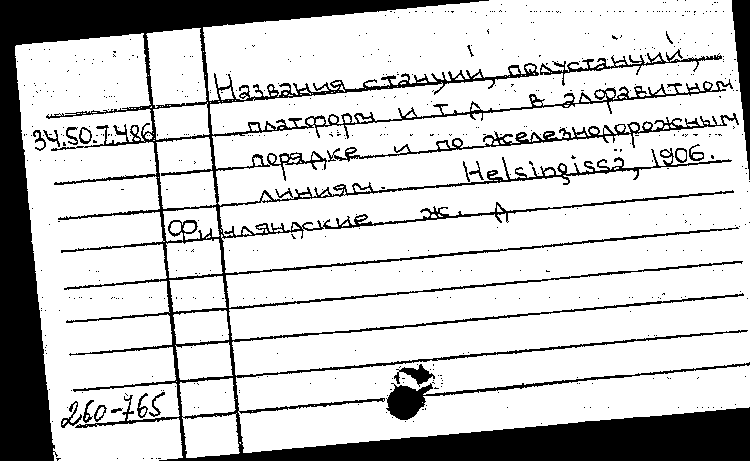 Названия станций, полустанций,
34.50.7.486 платформ и т.д. в алфавитном
порядке и по железнодорожным
линиям. Helsingissä, 1906.
Финляндские ж. д
260-765